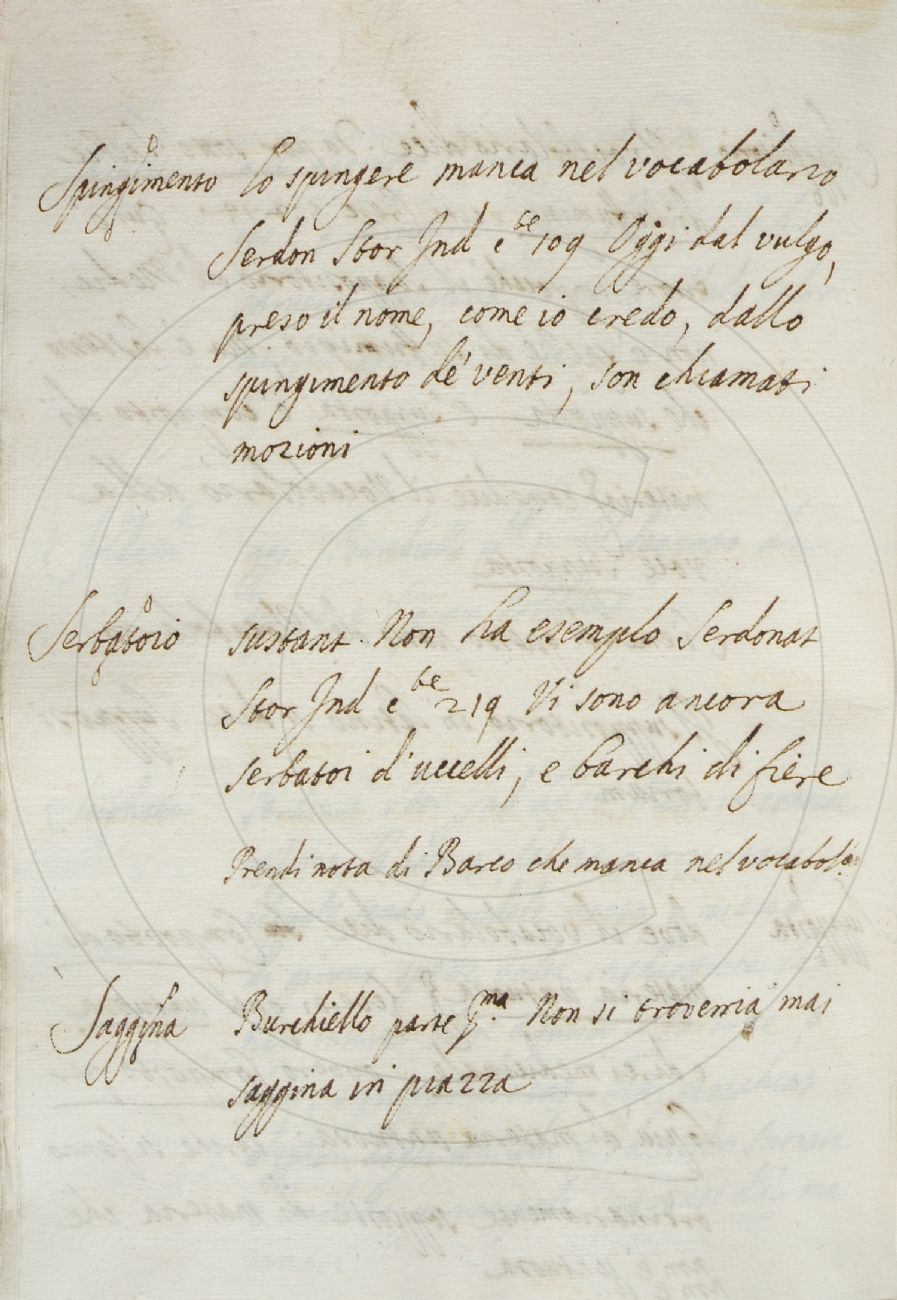 Spingimento lo spingere manca nel vocabolario
Serdon Stor Ind c te 109 Oggi dal vulgo,
preso il nome, come io credo, dallo
spingimento de' venti, son chiamati
mozioni
Serbatoio sustant. Non ha esemplo Serdonat
Stor Ind c te 219 Vi sono ancora
serbatoi d'uccelli, e barchi di fiere
Prendi nota di Barco che manca nel vocabol.º
Saggina Burchiello parte P.ma Non si troverria mai
saggina in piazza